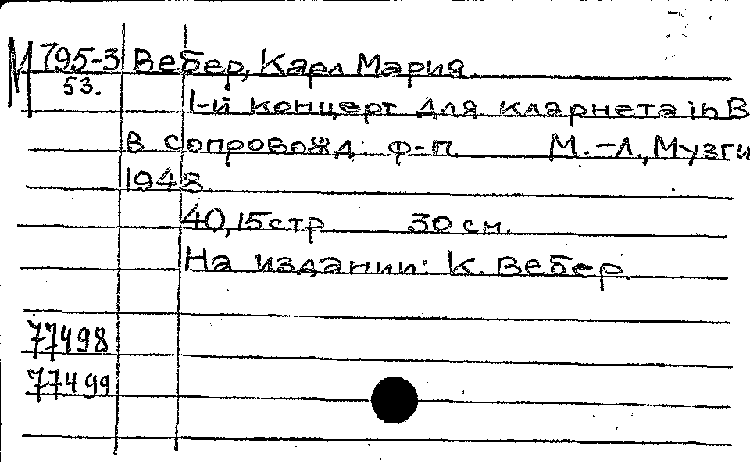 М 795-3 Вебер, Карл Мария
53.
1-й концерт для кларнета in B
в сопровожд. ф-п. М.-Л., Музги
1948
40, 15 стр 30 см.
На издании: К. Вебер
77498
77499